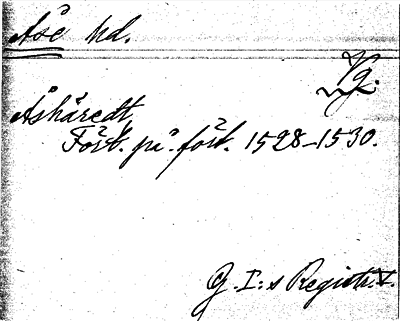 Åse hd.
Vg.
Åshäredt,
Fört. på fört. 1528-1530.
G. I:s Registr. V.